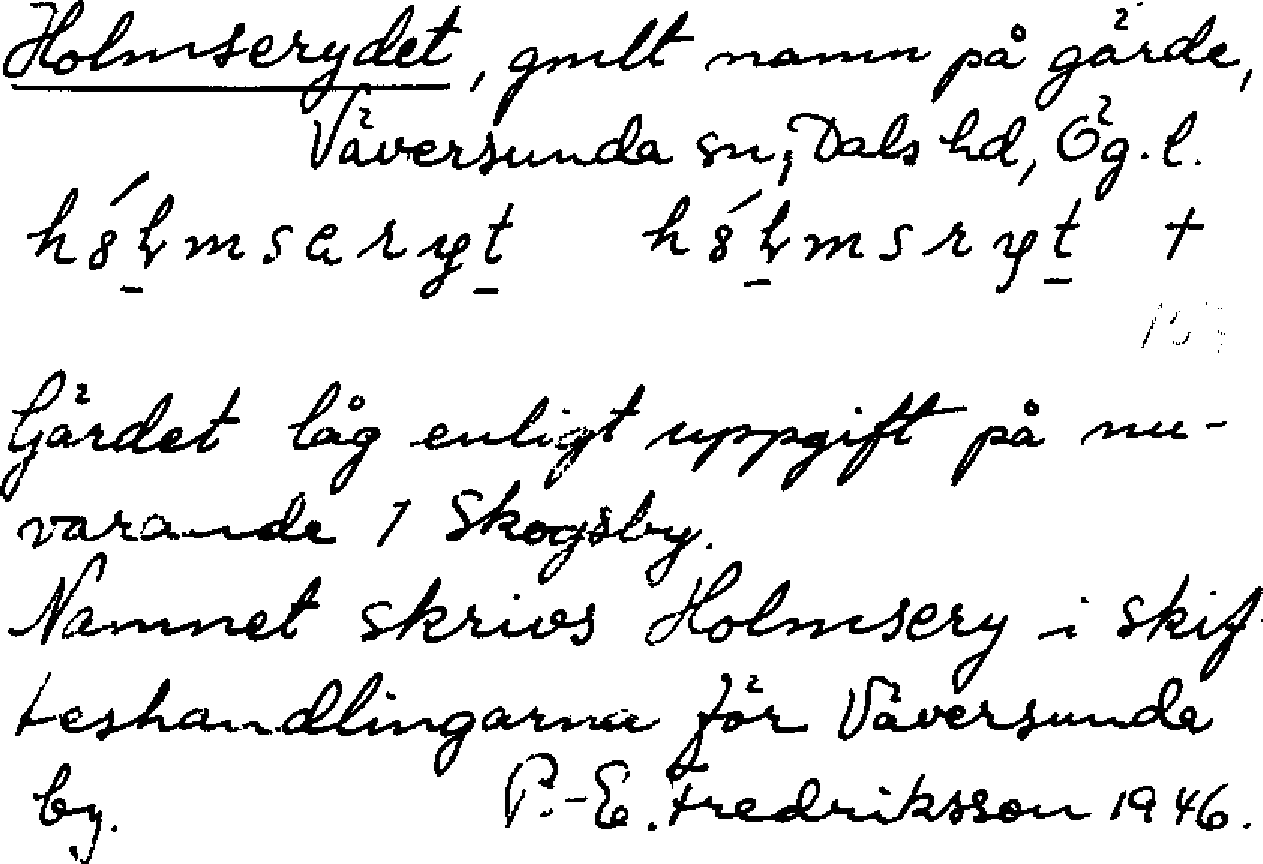 Holmserydet, gmlt namn på gärde,
Väversunda sn, Dals hd, Ög. l.
Gärdet låg enligt uppgift på nu-
varande 1 Skogsby.
Namnet skrivs Holmsery i skif-
teshandlingarna för Väversunda
by. P.-E. Fredriksson 1946.